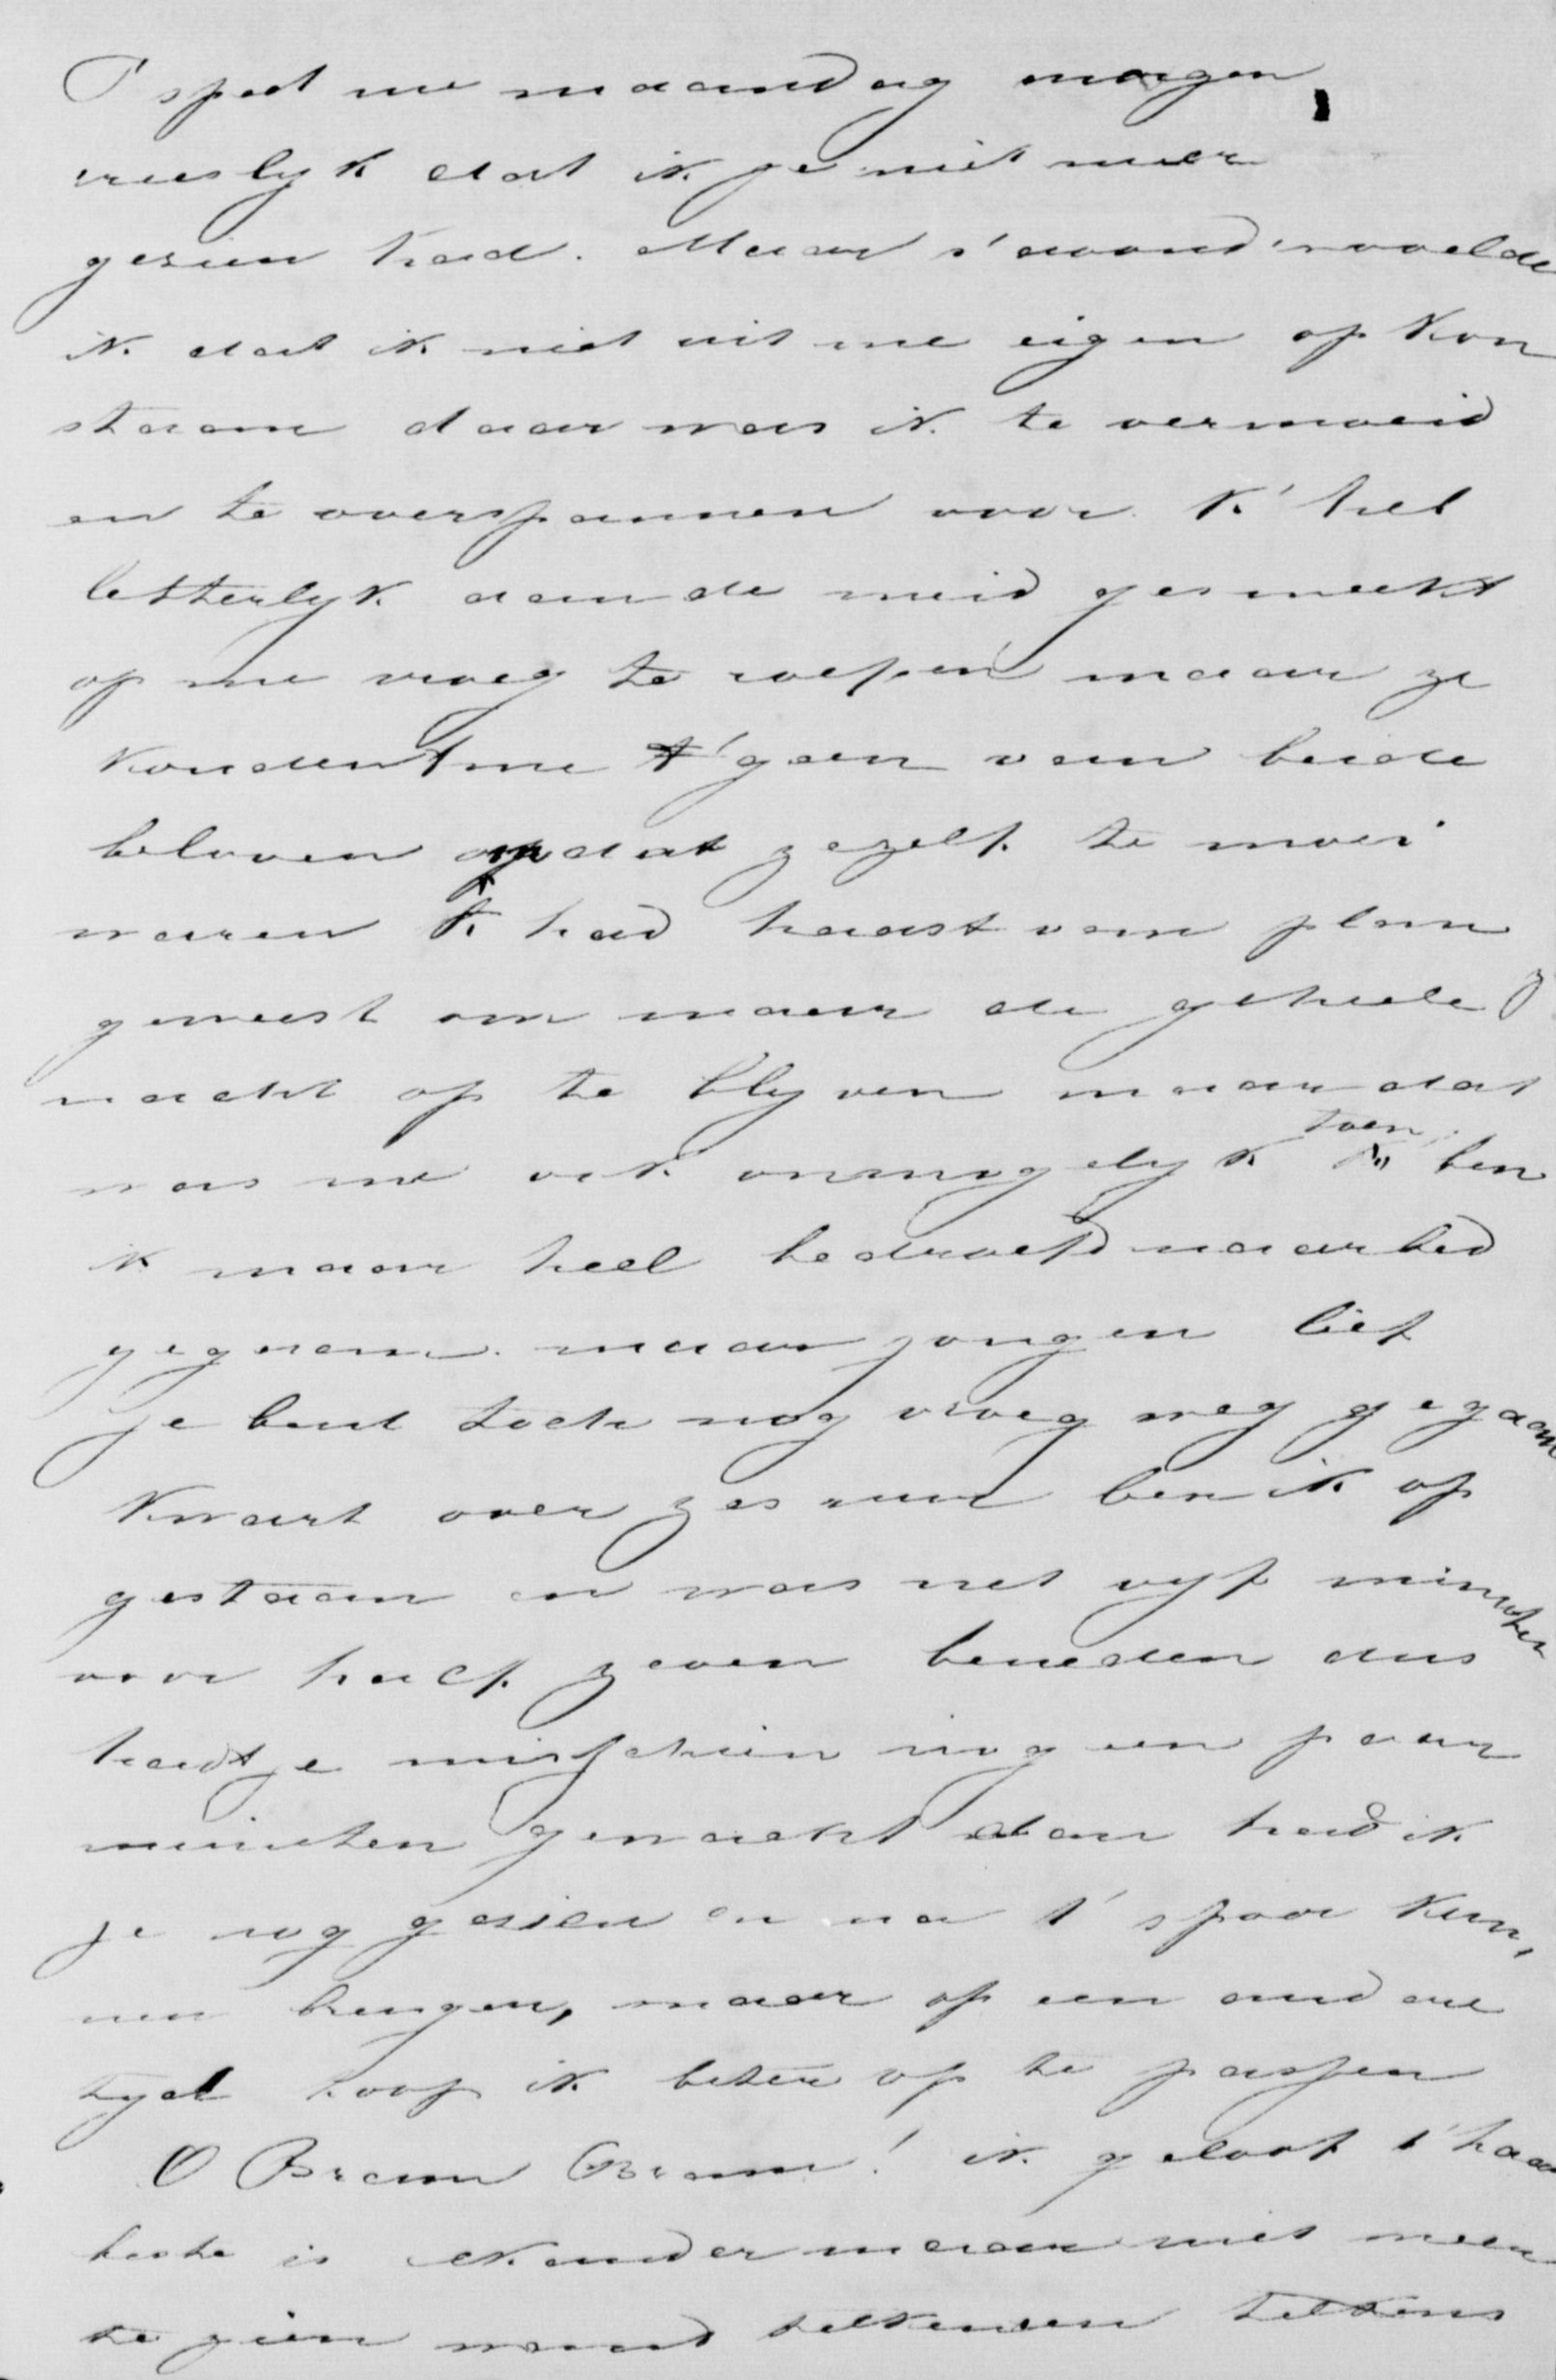 T' speet me maandag morgen
vreeslyk dat ik je niet meer
gezien had. Maar s'avonds voelde
ik dat ik niet uit me eigen op kon
staan daar was ik te vermoeid
en te overspannen voor. K' heb
letterlyk aan de meid gesmeekt
op me vroeg te roepen maar ze
konden me t' geen van beide
beloven omdat ze zelf te moei
waren K had haast van plan
geweest om maar de geheele
nacht op te blyven maar dat
was me ook onmogelyk toen ben
ik maar heel bedroefd naar bed
gegaan. maar jongen lief
je bent toch nog vroeg weg gegaan
kwart over zes uur ben ik op
gestaan en was net vyf minuten
voor half zeven beneden dus
hadt je misschien nog een paar
minuten gewacht dan had ik
je nog gezien en na t' spoor kun,
nen brengen, maar op een andere
tyd hoop ik beter op te passen
O Bram Bram! ik geloof t' haa
beste is elkander maar niet meer
te zien want telkens